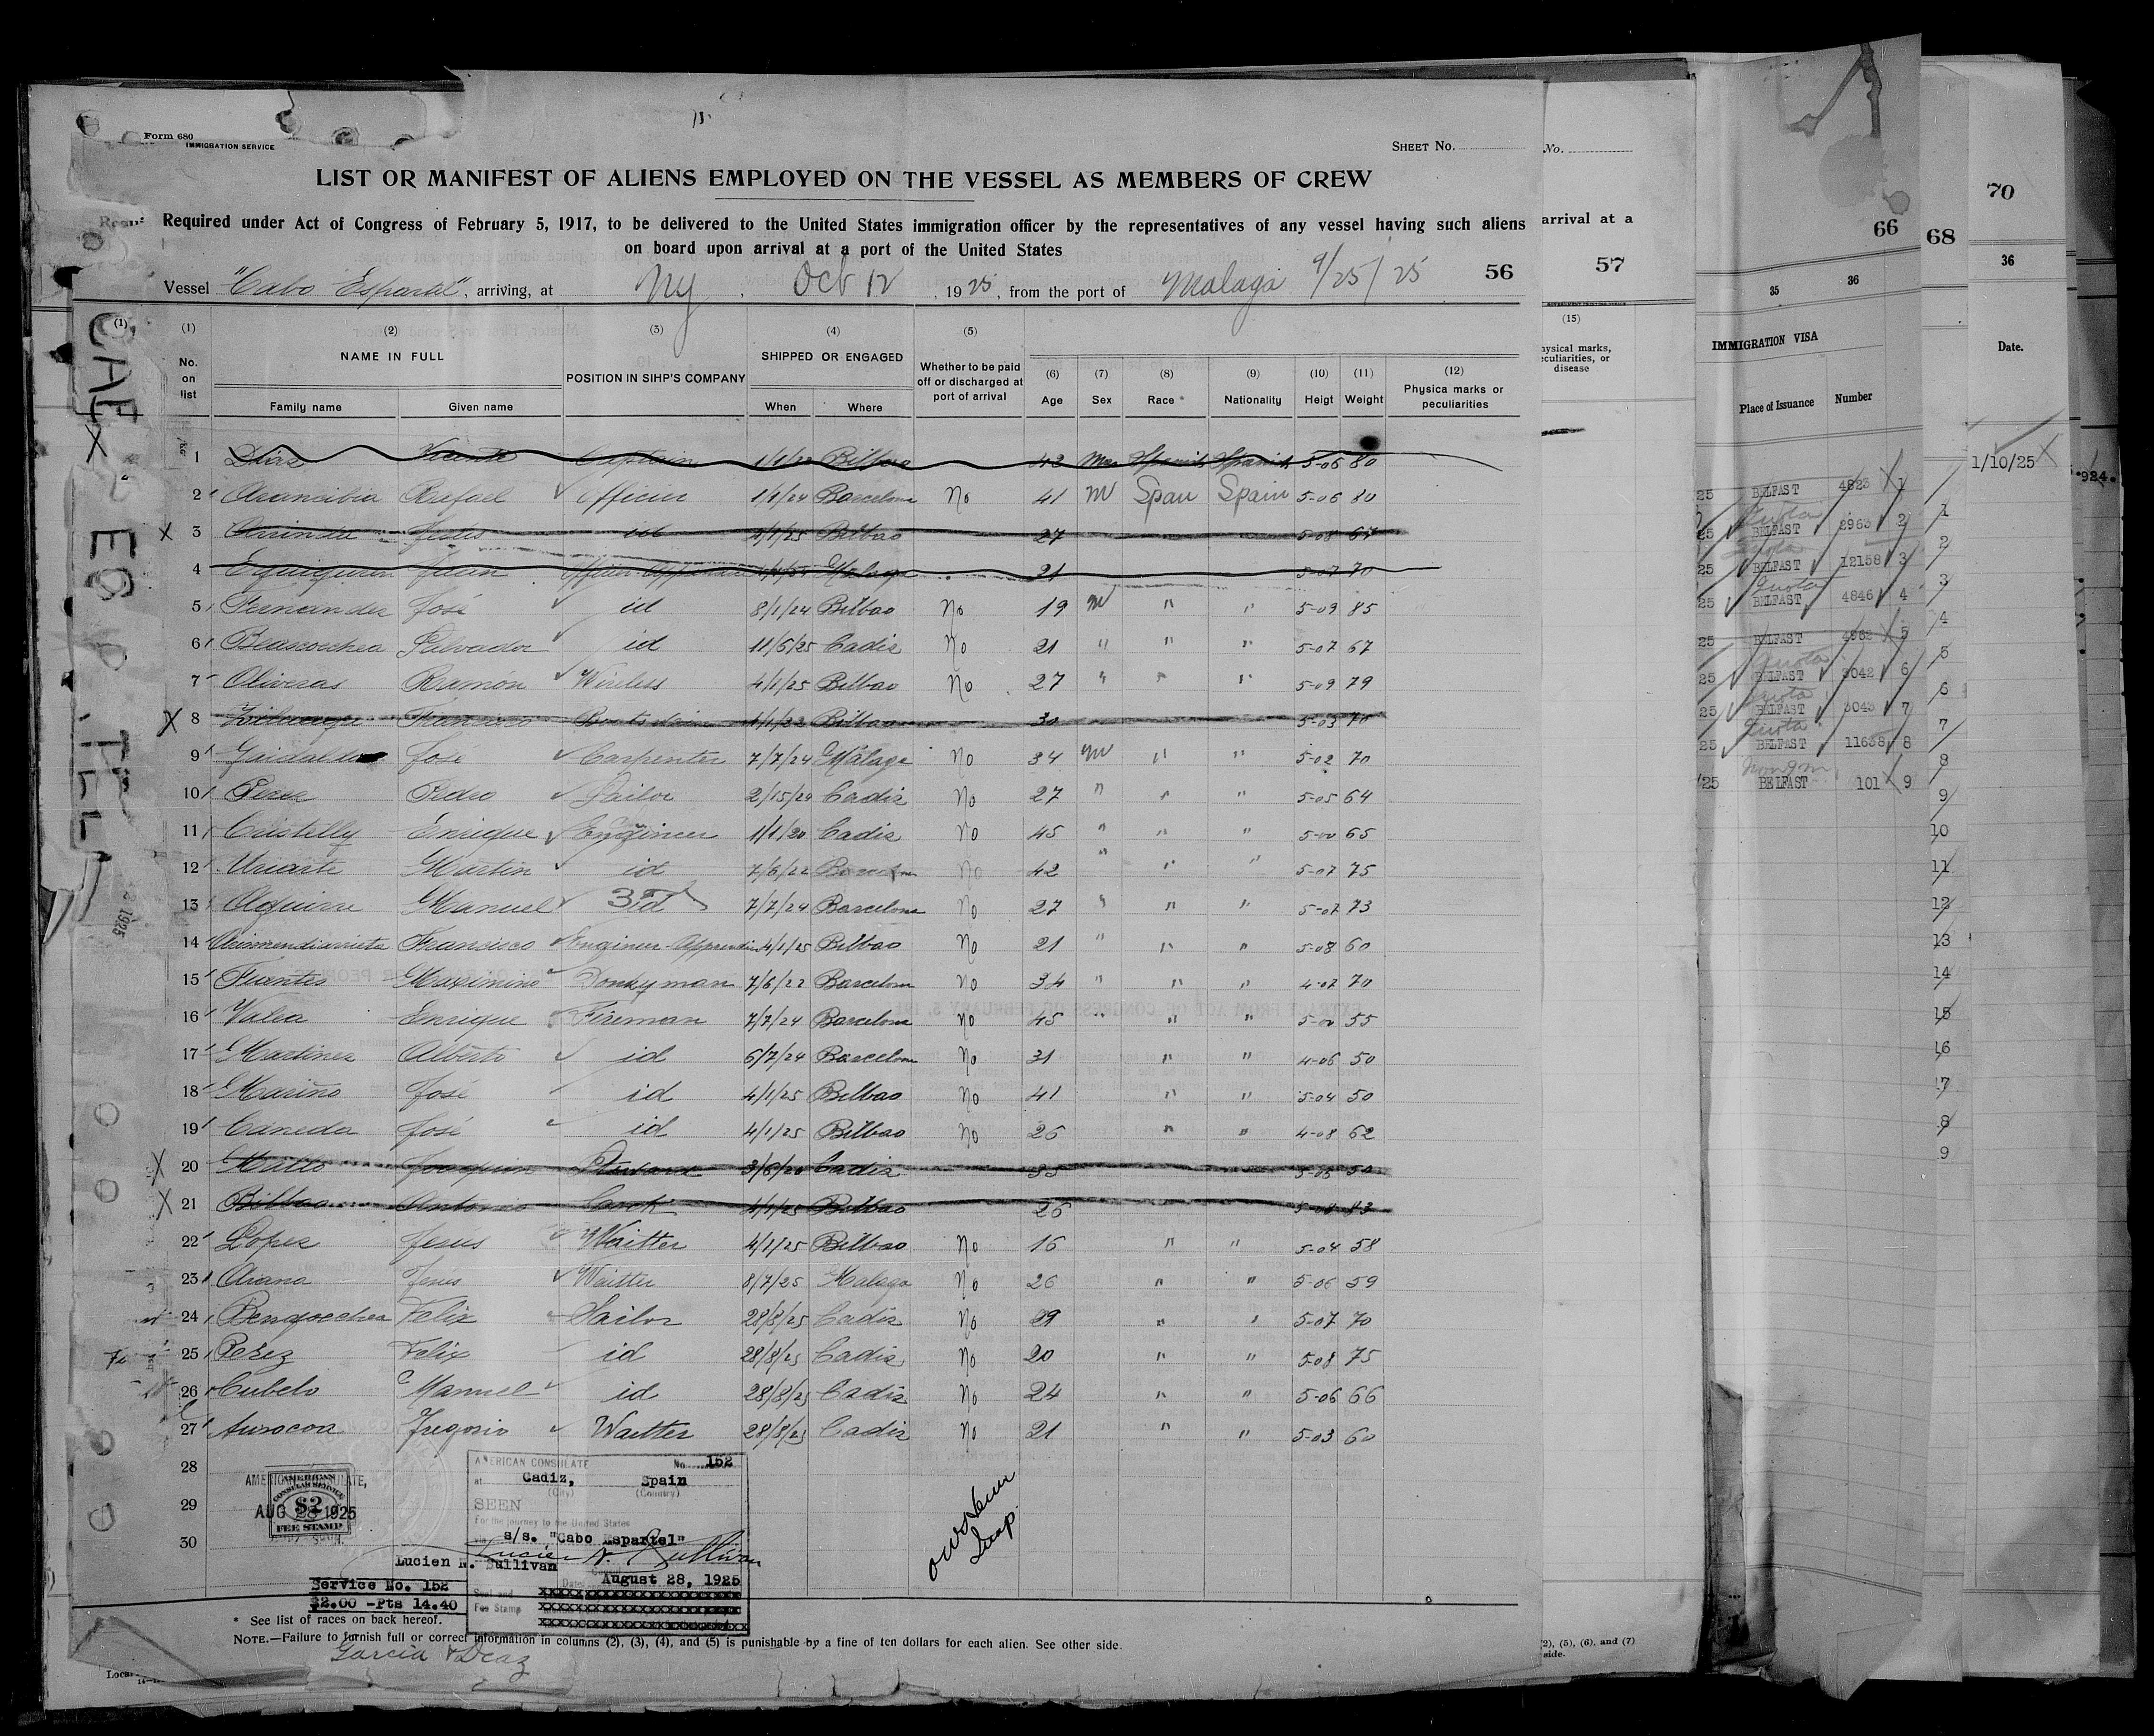 Form 680
IMMIGRATION SERVICE
SHEET No.
LIST OR MANIFEST OF ALIENS EMPLOYED ON THE VESSEL AS MEMBERS OF CREW
Required under Act of Congress of February 5, 1917, to be delivered to the United States immigration officer by the representatives of any vessel having such aliens
on board upon arrival at a port of the United States
Vessel "Cabo Esparal", arriving, at Ny, Oct 12, 1925, from the port of Malaga 9/25/25 56
(1) (2) (3) (4) (5) (6) (7) (8) (9) (10) (11) (12)
No. on list NAME IN FULL POSITION IN SIHP'S COMPANY SHIPPED OR ENGAGED Whether to be paid off or discharged at port of arrival Age Sex Race * Nationality Heigt Weight Physica marks or peculiarities
Family name Given name When Where
1 Dias Vicente Captain 1/1/22 Bilbao 42 Spanish Spanish 5-06 80
2 Arancibia Rafael Officier 1/1/24 Barcelona No 41 M Span Spain 5-06 80
3 Jesus id 4/1/25 Bilbao 27 5-08 67
4 Juan Malaga 21 5-07 70
5 Fernandez José id 8/1/24 Bilbao No 19 M " " 5-09 85
6 Beascoechea Salvador id 11/5/25 Cadiz No 21 " " " 5-07 67
7 Oliveras Ramon Wirless 4/1/25 Bilbao No 27 " " " 5-09 79
8 Francisco Bilbao 30 5-03 70
9 José Carpenter 7/7/24 Málaga No 34 M " " 5-02 70
10 Perez Pedro Sailor 2/15/24 Cadiz No 27 " " " 5-05 64
11 Cristilly Enrique Engineer 1/1/20 Cadiz No 45 " " " 5-00 65
12 Uriarte Martin id 7/6/22 Barcelona No 42 " " " 5-07 75
13 Aguirre Manuel 3rd 7/7/24 Barcelona No 27 " " " 5-07 73
14 Francisco Engineer Apprentice 4/1/25 Bilbao No 21 " " " 5-08 60
15 Fuentes Maximino Donkyman 7/6/22 Barcelona No 34 " " " 4-07 70
16 Valea Enrique Fireman 7/7/24 Barcelona No 45 " " " 5-00 55
17 Martinez Alberto id 6/7/24 Barcelona No 31 " " 4-06 50
18 Mariño José id 4/1/25 Bilbao No 41 " " 5-04 50
19 Caneda José id 4/1/25 Bilbao No 26 " " 4-08 62
20 Joaquin Steward 3/6/20 Cadiz 35 5-05 50
21 Bilbao Antonio Cook 4/1/25 Bilbao 26 5-08 83
22 Lopez Jesus Waitter 4/1/25 Bilbao No 16 " " 5-04 58
23 Arana Jesus Waitter 8/7/25 Malaga No 26 " " 5-06 59
24 Bengoechea Felix Sailor 28/8/25 Cadiz No 29 " " 5-07 70
25 Perez Felix id 28/8/25 Cadiz No 20 " " 5-08 75
26 Cubelo Manuel id 28/8/25 Cadiz No 24 " " 5-06 66
27 Aurocoa Gregorio Waitter 28/8/25 Cadiz No 21 " " 5-03 60
28
29
30
AMERICAN CONSULATE,
AMERICAN CONSULAR SERVICE
$2
FEE STAMP
AUG 28 1925
AMERICAN CONSULATE No 152
at Cadiz, Spain
(City) (Country)
SEEN
For the journey to the United States
s/s. "Cabo Espartel"
Lucien N. Sullivan
Lucien N. Sullivan
Date: August 28, 1925
Fee Stamp
Service No. 152
$2.00 -Pts 14.40
* See list of races on back hereof.
NOTE.—Failure to furnish full or correct information in columns (2), (3), (4), and (5) is punishable by a fine of ten dollars for each alien. See other side.
Garcia & Diaz
No.
arrival at a
57
(15)
physical marks, peculiarities, or disease
(2), (5), (6), and (7)
side.
66
35 36
IMMIGRATION VISA
Place of Issuance Number
25 BELFAST 4823 1
25 Quota BELFAST 2963 2
25 Quota BELFAST 12158 3
25 Quota BELFAST 4846 4
25 BELFAST 4962 5
25 Quota BELFAST 3042 6
25 Quota BELFAST 3043 7
25 Quota BELFAST 11638 8
25 BELFAST 101 9
68
1
2
3
4
5
6
7
8
9
10
11
12
13
14
15
16
17
8
9
70
36
Date.
1/10/25
924.